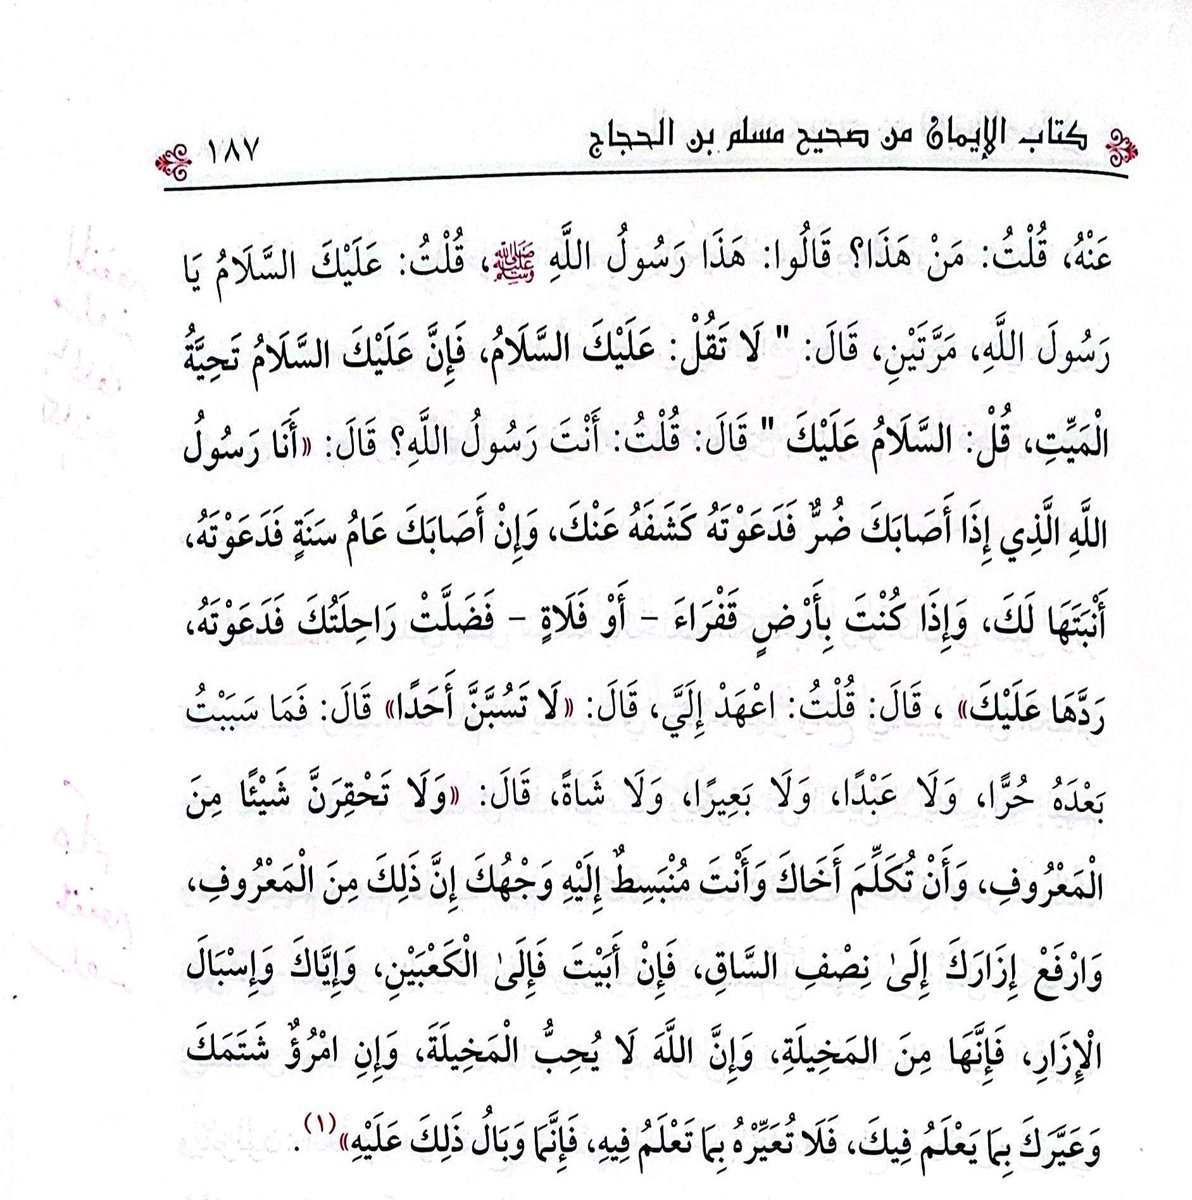 كتاب الإيمان من صحيح مسلم بن الحجاج ١٨٧
عَنْهُ، قُلْتُ: مَنْ هَذَا؟ قَالُوا: هَذَا رَسُولُ اللَّهِ ﷺ، قُلْتُ: عَلَيْكَ السَّلَامُ يَا
رَسُولَ اللَّهِ، مَرَّتَيْنِ، قَالَ: " لَا تَقُلْ: عَلَيْكَ السَّلَامُ، فَإِنَّ عَلَيْكَ السَّلَامُ تَحِيَّةُ
الْمَيِّتِ، قُلْ: السَّلَامُ عَلَيْكَ " قَالَ: قُلْتُ: أَنْتَ رَسُولُ اللَّهِ؟ قَالَ: «أَنَا رَسُولُ
اللَّهِ الَّذِي إِذَا أَصَابَكَ ضُرٌّ فَدَعَوْتَهُ كَشَفَهُ عَنْكَ، وَإِنْ أَصَابَكَ عَامُ سَنَةٍ فَدَعَوْتَهُ،
أَنْبَتَهَا لَكَ، وَإِذَا كُنْتَ بِأَرْضٍ قَفْرَاءَ - أَوْ فَلَاةٍ - فَضَلَّتْ رَاحِلَتُكَ فَدَعَوْتَهُ،
رَدَّهَا عَلَيْكَ» ، قَالَ: قُلْتُ: اعْهَدْ إِلَيَّ، قَالَ: «لَا تَسُبَّنَّ أَحَدًا» قَالَ: فَمَا سَبَبْتُ
بَعْدَهُ حُرًّا، وَلَا عَبْدًا، وَلَا بَعِيرًا، وَلَا شَاةً، قَالَ: «وَلَا تَحْقِرَنَّ شَيْئًا مِنَ
الْمَعْرُوفِ، وَأَنْ تُكَلِّمَ أَخَاكَ وَأَنْتَ مُنْبَسِطٌ إِلَيْهِ وَجْهُكَ إِنَّ ذَلِكَ مِنَ الْمَعْرُوفِ،
وَارْفَعْ إِزَارَكَ إِلَىٰ نِصْفِ السَّاقِ، فَإِنْ أَبَيْتَ فَإِلَىٰ الْكَعْبَيْنِ، وَإِيَّاكَ وَإِسْبَالَ
الْإِزَارِ، فَإِنَّهَا مِنَ المَخِيلَةِ، وَإِنَّ اللَّهَ لَا يُحِبُّ الْمَخِيلَةَ، وَإِنِ امْرُؤٌ شَتَمَكَ
وَعَيَّرَكَ بِمَا يَعْلَمُ فِيكَ، فَلَا تُعَيِّرْهُ بِمَا تَعْلَمُ فِيهِ، فَإِنَّمَا وَبَالُ ذَلِكَ عَلَيْهِ»(١).